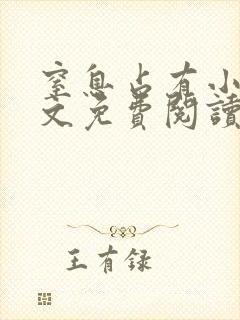 窒息占有小
文免費閱讀
王有録